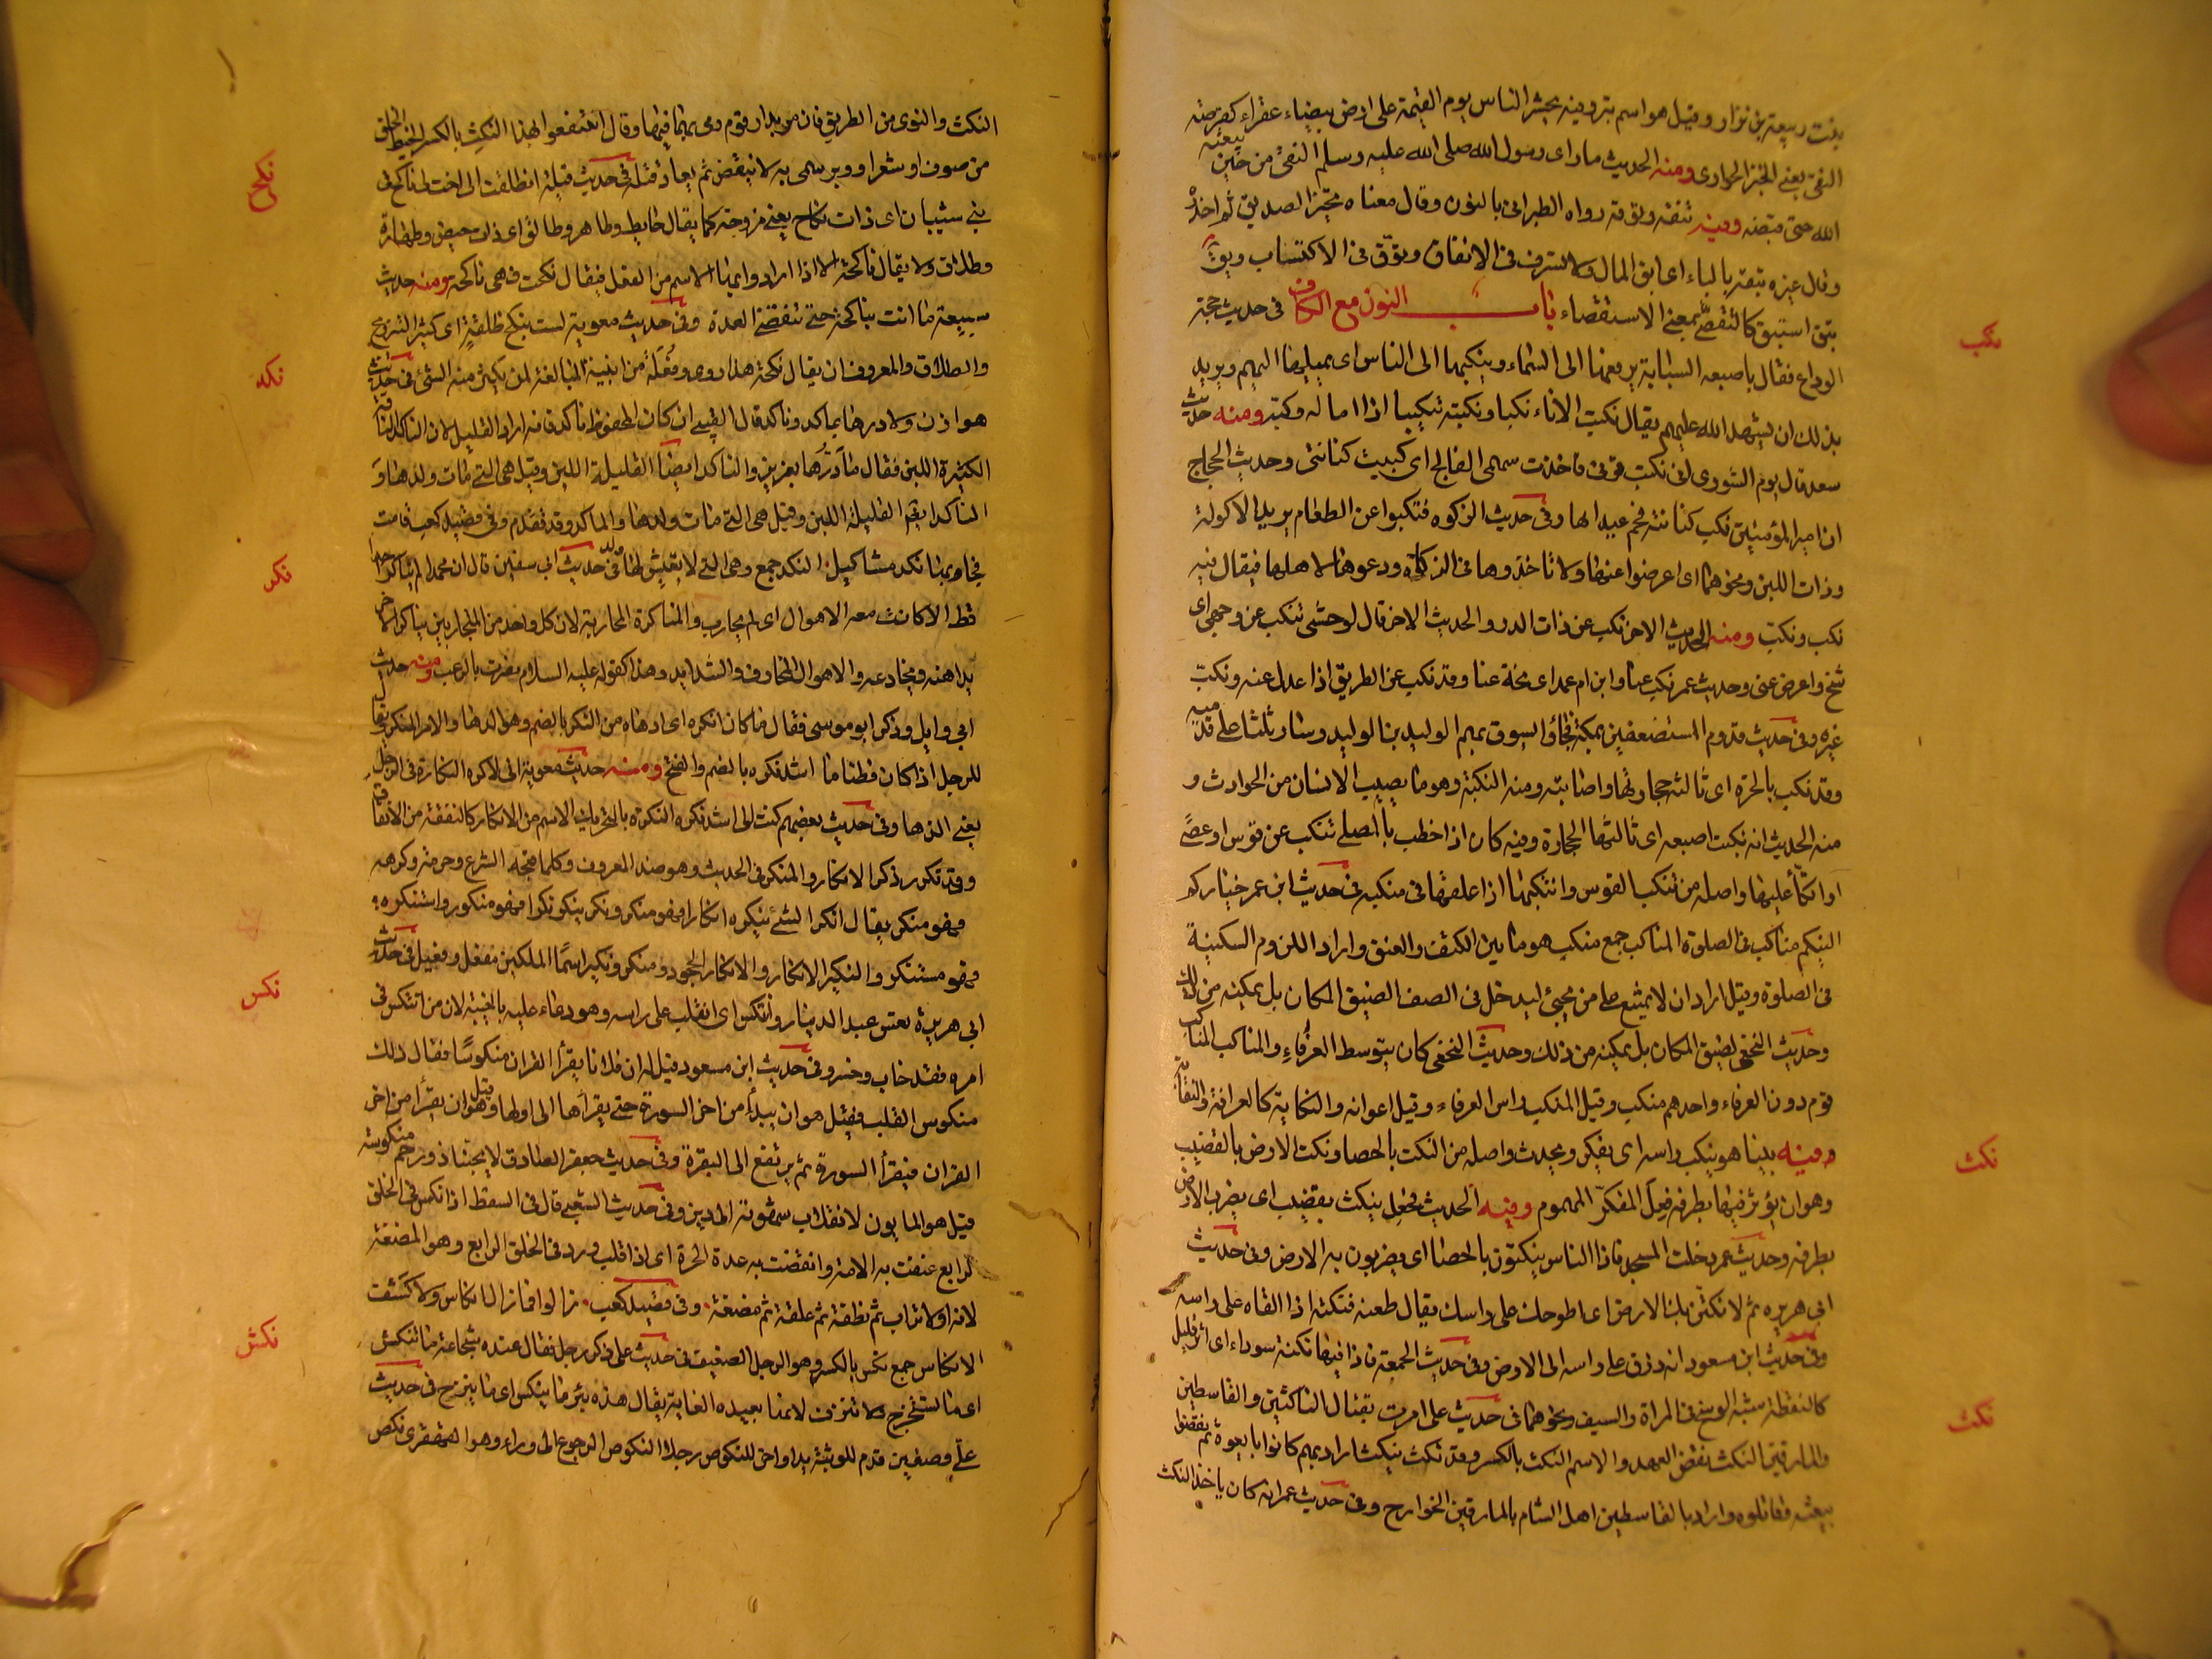 بنت ربيعة بن نزار وقيل هو اسم بئر وفيه يحشر الناس يوم القيمة على ارض بيضاء عفراء كقرصة
النقي يعني الخبز الحوارى ومنه الحديث ما راى رسول الله صلى الله عليه وسلم النقي من حين
الله حتى قبضه وفيه تنقه وتوقه رواه الطبرانى بالنون وقال معناه تخير الصديق ثم احذره
وقال غيره تبقه بالباء اى ابق المال ولا تسرف فى الانفاق وتوق فى الاكتساب ويق
بتق استبق كالتقصي بمعنى الاستقصاء باب النون مع الكاف فى حديث حجة
نكب
الوداع فقال باصبعه السبابة يرفعها الى السماء وينكبها الى الناس اى يميلها اليهم ويريد
بذلك ان يشهد الله عليهم يقال نكبت الاناء نكبا ونكبته تنكيبا اذا اماله وكبه ومنه حديث
سعد قال يوم الشورى انى نكبت قرنى فاخذت سهمى الفالج اى كببت كنانتى وحديث الحجاج
ان امير المؤمنين نكب كنانته فعجم عيدانها وفى حديث الزكوه نكبوا عن الطعام يريد الاكولة
وذات اللبن ونحوهما اى اعرضوا عنها ولا تاخذوها فى الزكاة ودعوها لاهلها فيقال فيه
نكب ونكب ومنه الحديث الاخر نكب عن ذات الدر والحديث الاخر قال لوحشى تنكب عن وجهى اى
تنح واعرض عنى وحديث عمر نكب عنا ابن ام عبد اى نحه عنا وقد نكب عن الطريق اذا عدل عنه ونكب
غيره وفى حديث قدوم المستضعفين بمكة فجاؤا يسوق بهم الوليد بن الوليد وسار ثلثا على قدميه
وقد نكب بالحرة اى نالته حجارتها واصابته ومنه النكبة وهو ما يصيب الانسان من الحوادث و
منه الحديث انه نكبت اصبعه اى نالتها الحجارة وفيه كان اذا خطب بالمصلى تنكب عن قوس او عصا
اى اتكأ عليها واصله من تنكب القوس وانتكبها اذا علقها فى منكبه فى حديث ابن عمر خياركم
الينكم مناكب فى الصلوة المناكب جمع منكب هو ما بين الكتف والعنق واراد اللزوم السكينة
فى الصلوة وقيل اراد ان لا يمتنع على من يجيئ ليدخل فى الصف الضيق المكان بل يمكنه من ذلك
وحديث النخعى لضيق المكان بل يمكنه من ذلك وحديث النخعى كان يتوسط العرفاء والمناكب المناكب
قوم دون العرفاء واحدهم منكب وقيل المنكب راس العرفاء وقيل اعوانه والنكابة كالعرافة والنقابة
ومنه بينا هو ينكت راسه اى يفكر ويحدث واصله من النكت بالحصا ونكت الارض بالقضيب
نكت
وهو ان يؤثر فيها بطرفه فعل المفكر المهموم وفيه الحديث فجعل ينكت بقضيب اى يضرب الارض
بطرفه وحديث عمر دخلت المسجد فاذا الناس ينكتون بالحصا اى يضربون به الارض وفى حديث
ابى هريره ثم لانكتن بك الارض اى اطرحك على راسك يقال طعنه فنكته اذا القاه على راسه
وفى حديث ابن مسعود انه ذرق على راسه الى الارض وفى حديث الجمعة فاذا فيها نكتة سوداء اى اثر قليل
كالنقطة شبه الوسخ فى المراة والسيف ونحوهما فى حديث على امرت بقتال الناكثين والقاسطين
نكث
والمارقين النكث نقض العهد والاسم النكث بالكسر وقد نكث ينكث اراد بهم كانوا بايعوه ثم نقضوا
بيعته فقاتلوه واراد بالقاسطين اهل الشام بالمارقين الخوارج وفى حديث عمر انه كان ياخذ النكث
النكث والنوى من الطريق فان مر بدار قوم رمى بهما فيها وقال انتفعوا بهذا النكث بالكسر الخيط الخلق
من صوف او شعر او وبر سمى به لانه ينقض ثم يعاد فتله فى حديث قيلة انطلقت الى اخت لى ناكح فى
نكح
بنى شيبان اى ذات نكاح يعنى مزوجة كما يقال حائض وطاهر وطالق اى ذات حيض وطهارة
وطلاق ولا يقال ناكحة الا اذا ارادوا بناء الاسم من الفعل فيقال نكحت فهى ناكحة ومنه حديث
سبيعة ما انت بناكحة حتى تنقضى العدة وفى حديث معوية لست بنكح طلقة اى كثير التزويج
والطلاق والمعروف ان يقال نكحة هكذا روى وفعلة من ابنية المبالغة لمن يكثر منه الشئ فى حديث
نكد
هوازن ولا درها بماكد وناكد قال القتيبى ان كان المحفوظ ناكد فانه اراد القليل لان الناكد الناقة
الكثيرة اللبن فقال ما درها بغزير والناكد ايضا القليلة اللبن وقيل هى التى مات ولدها و
الناكد ايضا القليلة اللبن وقيل هى التى مات ولدها والماكد وقد تقدم وفى قصيد كعب قامت
فجاوبها نكد مثاكيل النكد جمع وهى التى لا يعيش لها ولد فى حديث ابى سفين قال ان محمدا لم يناكر احدا
نكر
قط الا كانت معه الاهوال اى لم يحارب والمناكرة المحاربة لان كل واحد من المتحاربين يناكر الاخر
يداهنه ويخادعه والاهوال المخاوف والشدايد وهذا كقوله عليه السلام نصرت بالرعب ومنه حديث
ابى وايل وذكر ابو موسى فقال ما كان انكره اى ادهاه من النكر بالضم وهو الدها والامر المنكر يقال
للرجل اذا كان فطنا ما اشد نكره بالضم والفتح ومنه حديث معوية انى لاكره النكارة فى الرجل
يعنى الدها وفى حديث بعضهم كنت لى اشد نكره النكرة بالتحريك الاسم من الانكار كالنفقة من الانفاق
وقد تكرر ذكر الانكار والمنكر فى الحديث وهو ضد المعروف وكلما قبحه الشرع وحرمه وكرهه
فهو منكر يقال انكر الشئ ينكره انكارا فهو منكر ونكر ينكر نكرا فهو منكور واستنكره
فهو مستنكر والنكير الانكار والانكار الجحود ومنكر ونكير اسما الملكين مفعل وفعيل فى حديث
نكس
ابى هريرة تعس عبد الدينار وانتكس اى انقلب على راسه وهو دعاء عليه بالخيبة لان من انتكس فى
امره فقد خاب وخسر وفى حديث ابن مسعود قيل له ان فلانا يقرأ القران منكوسا فقال ذلك
منكوس القلب فقيل هو ان يبدأ من اخر السورة حتى يقرأها الى اولها وقيل هو ان يقرأ من اخر
القران فيقرأ السورة ثم يرتفع الى البقرة وفى حديث جعفر الصادق لا يحبنا ذو رحم منكوسة
قيل هو المابون لانقلاب شهوته الى دبره وفى حديث الشعبى قال فى السقط اذا نكس فى الخلق
الرابع عتقت به الامة وانقضت به عدة الحرة اى اذا قلب ورد فى الخلق الرابع وهو المضغة
لانه اولا تراب ثم نطفة ثم علقة ثم مضغة وفى قصيد كعب زالوا فما زال انكاس ولا كشف
الانكاس جمع نكس بالكسر وهو الرجل الضعيف فى حديث على ذكر رجل فقال عنده شجاعة ما تنكش
نكش
اى ما تستخرج ولا تنزف لانها بعيده الغاية يقال هذه بئر ما ينكش اى ما ينزح فى حديث
على وصفين قدم للوثبة يدا واخر للنكوص رجلا النكوص الرجوع الى وراء وهو القهقرى نكص